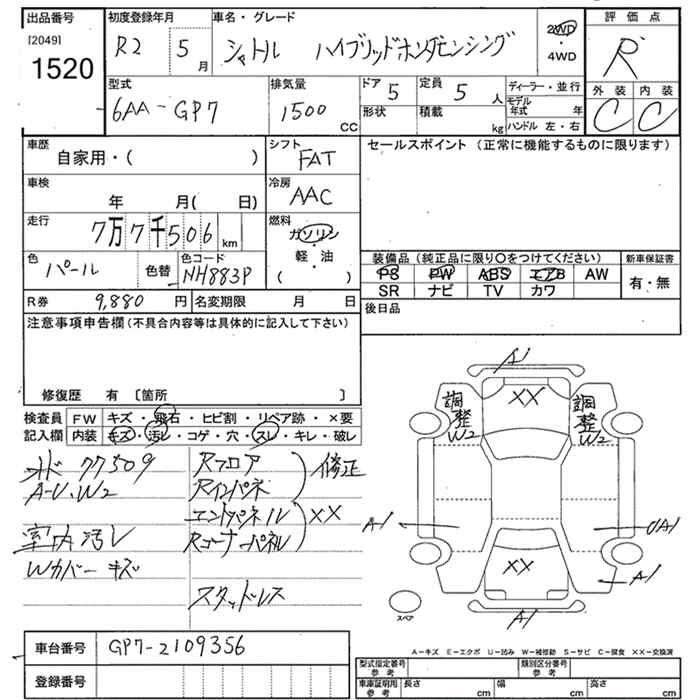 出品番号
[2049]
1520
初度登録年月
R2 5月
車名・グレード
シャトル ハイブリッドホンダセンシング
2WD
・
4WD
評価点
R
外装 内装
C C
型式
6AA-GP7
排気量
1500
CC
ドア 5
定員 5 人
形状
積載 kg
ディーラー・並行
モデル年式 年
ハンドル 左・右
車歴
自家用・( )
シフト
FAT
セールスポイント (正常に機能するものに限ります)
車検
年 月( 日)
冷房
AAC
走行
7万7千506 km
燃料
ガソリン
・
軽・油
( )
色
パール
色替
色コード
NH883P
装備品 (純正品に限り○をつけてください)
PS PW ABS エアB AW
SR ナビ TV カワ
新車保証書
有・無
R券 9,880 円
名変期限 月 日
後日品
注意事項申告欄 (不具合内容等は具体的に記入して下さい)
修復歴 有 [箇所 ]
検査員
記入欄
FW キズ・飛石・ヒビ割・リペア跡・×要
内装 キズ・汚レ・コゲ・穴・スレ・キレ・破レ
77509
A-U、W2
室内汚レ
Wカバーキズ
Rフロア
Rインパネ
修正
エンドパネル
Rコーナーパネル
XX
スタッドレス
A1
XX
調整
W2
調整
W2
A1
A1
XX
A1
A1
スペア
A-キズ E-エクボ U-凹み W-補修跡 S-サビ C-腐食 XX-交換済
車台番号
GP7-2109356
登録番号
型式指定番号
参考
類別区分番号
参考
車庫証明用
参考
長さ cm
幅 cm
高さ cm